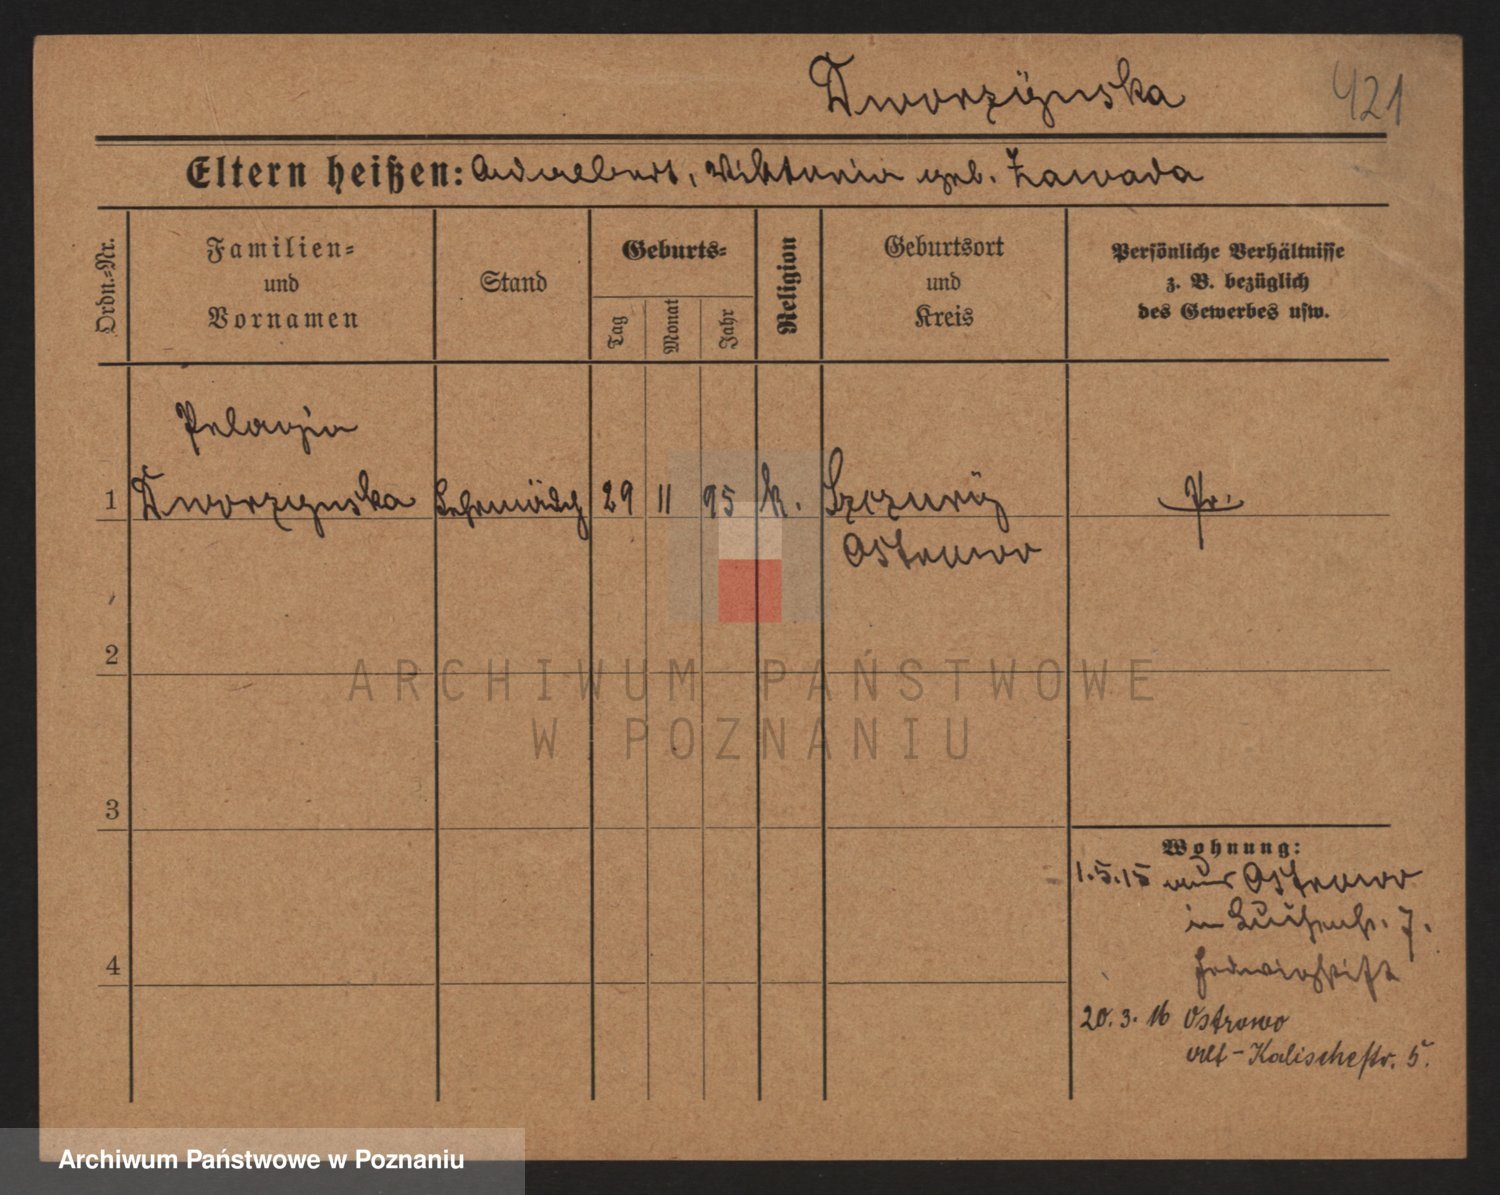 Dworzÿnska
421
Eltern heißen: Adalbert, Viktoria geb. Zawada
Ordn.-Nr.
Familien-
und
Vornamen
Stand
Geburts-
Tag
Monat
Jahr
Religion
Geburtsort
und
Kreis
Persönliche Verhältnisse
z. B. bezüglich
des Gewerbes usw.
Pelagia
1 Dworzynska Lehrmädch 29 11 95 k. Szczury Pr.
Ostrowo
2
ARCHIWUM PAŃSTWOWE
W POZNANIU
3
Wohnung:
1.5.15 aus Ostrowo
in 7.
4
Hedwigstift
20.3.16 Ostrowo
Alt-Kalischestr. 5.
Archiwum Państwowe w Poznaniu